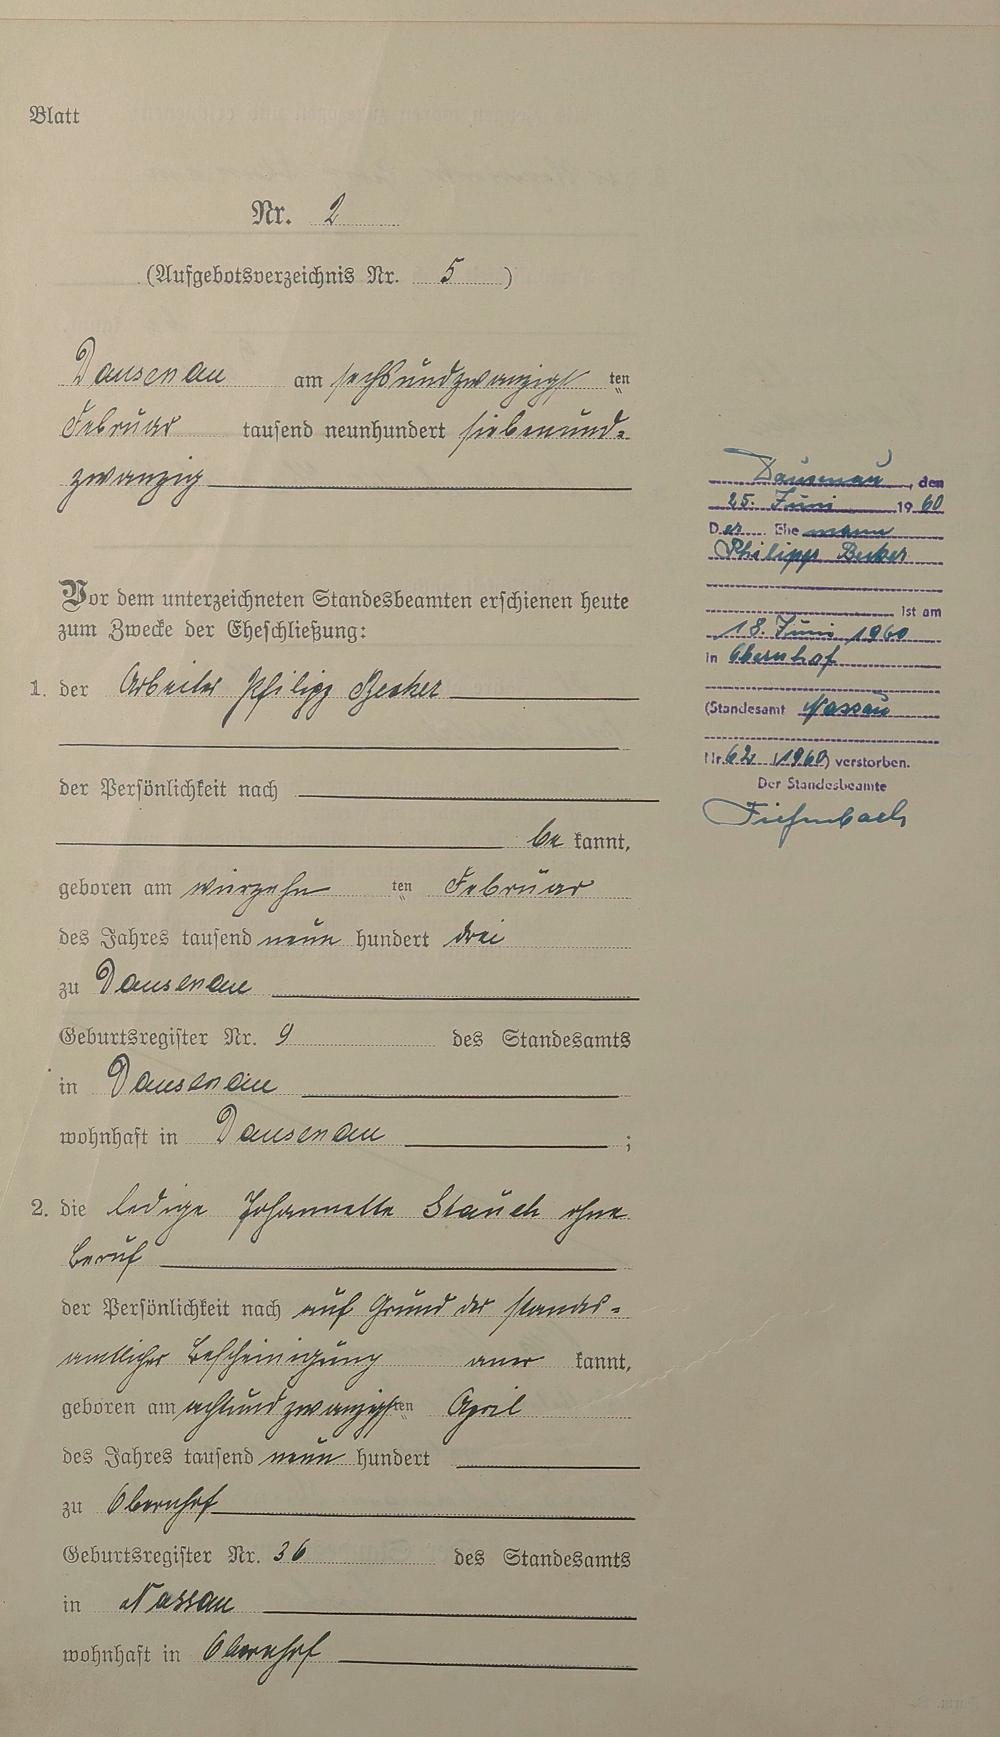 Blatt
Nr. 2
(Aufgebotsverzeichnis Nr. 5)
Dausenau am sechsundzwanzigsten
Februar tausend neunhundert siebenund-
zwanzig
Vor dem unterzeichneten Standesbeamten erschienen heute
zum Zwecke der Eheschließung:
1. der Arbeiter Philipp Becker
der Persönlichkeit nach
be kannt,
geboren am vierzehn ten Februar
des Jahres tausend neun hundert drei
zu Dausenau
Geburtsregister Nr. 9 des Standesamts
in Dausenau
wohnhaft in Dausenau ;
2. die ledige Johannette Stauch ohne
Beruf
der Persönlichkeit nach auf Grund der standes-
amtlicher Bescheinigung aner kannt,
geboren am achtundzwanzigsten April
des Jahres tausend neun hundert
zu Obernhof
Geburtsregister Nr. 36 des Standesamts
in Nassau
wohnhaft in Obernhof
Dausenau, den
25. Juni 1960
Der Ehemann
Philipp Becker
ist am
18. Juni 1960
in Obernhof
(Standesamt Nassau
Nr. 62 /1960) verstorben.
Der Standesbeamte
Tiefenbach